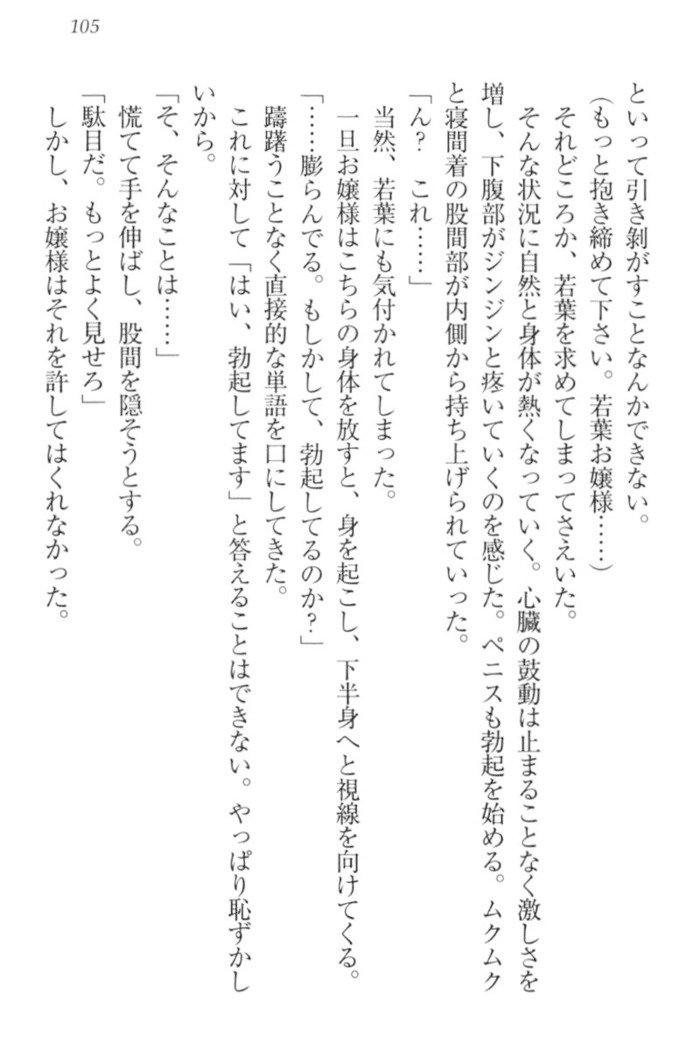 105
といって引き剝がすことなんかできない。
(もっと抱き締めて下さい。若葉お嬢様……)
それどころか、若葉を求めてしまってさえいた。
そんな状況に自然と身体が熱くなっていく。心臓の鼓動は止まることなく激しさを
増し、下腹部がジンジンと疼いていくのを感じた。ペニスも勃起を始める。ムクムク
と寝間着の股間部が内側から持ち上げられていった。
「ん?　これ……」
当然、若葉にも気付かれてしまった。
一旦お嬢様はこちらの身体を放すと、身を起こし、下半身へと視線を向けてくる。
「……膨らんでる。もしかして、勃起してるのか?」
躊躇うことなく直接的な単語を口にしてきた。
これに対して「はい、勃起してます」と答えることはできない。やっぱり恥ずかし
いから。
「そ、そんなことは……」
慌てて手を伸ばし、股間を隠そうとする。
「駄目だ。もっとよく見せろ」
しかし、お嬢様はそれを許してはくれなかった。